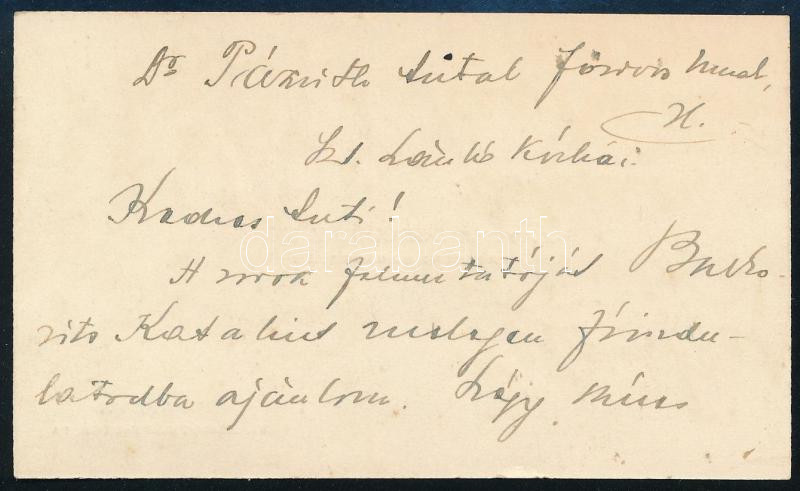 Dr Antal főorvos Urnak,
H.
Szt. László Kórház
Kedves Anti!
A sorok felmutatóját
Katalint melegen jóindu-
latodba ajánlom. Légy
darabanth